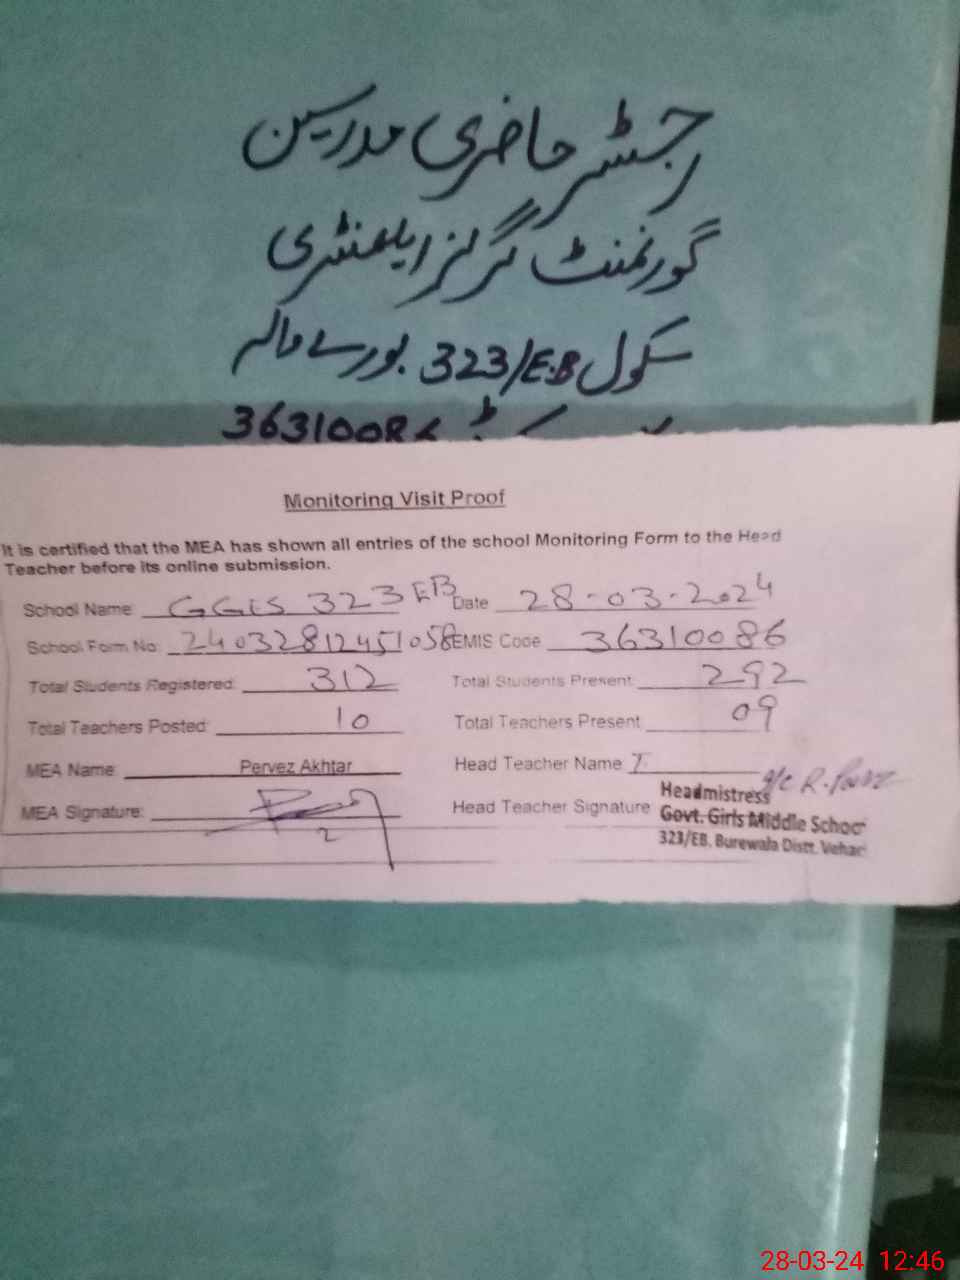 رجسٹر حاضری مدرسین
گورنمنٹ گرلز ایلمنٹری
سکول 323/E.B بورے والہ
3631008
Monitoring Visit Proof
It is certified that the MEA has shown all entries of the school Monitoring Form to the Head
Teacher before its online submission.
School Name: GGES 323 EB Date 28-03-2024
School Form No: 24032812451058 EMIS Code 36310086
Total Students Registered: 312 Total Students Present: 292
Total Teachers Posted: 10 Total Teachers Present 09
MEA Name: Pervez Akhtar Head Teacher Name:
MEA Signature: Head Teacher Signature
Headmistress
Govt. Girls Middle School
323/EB. Burewala Distt. Vehari
28-03-24 12:46